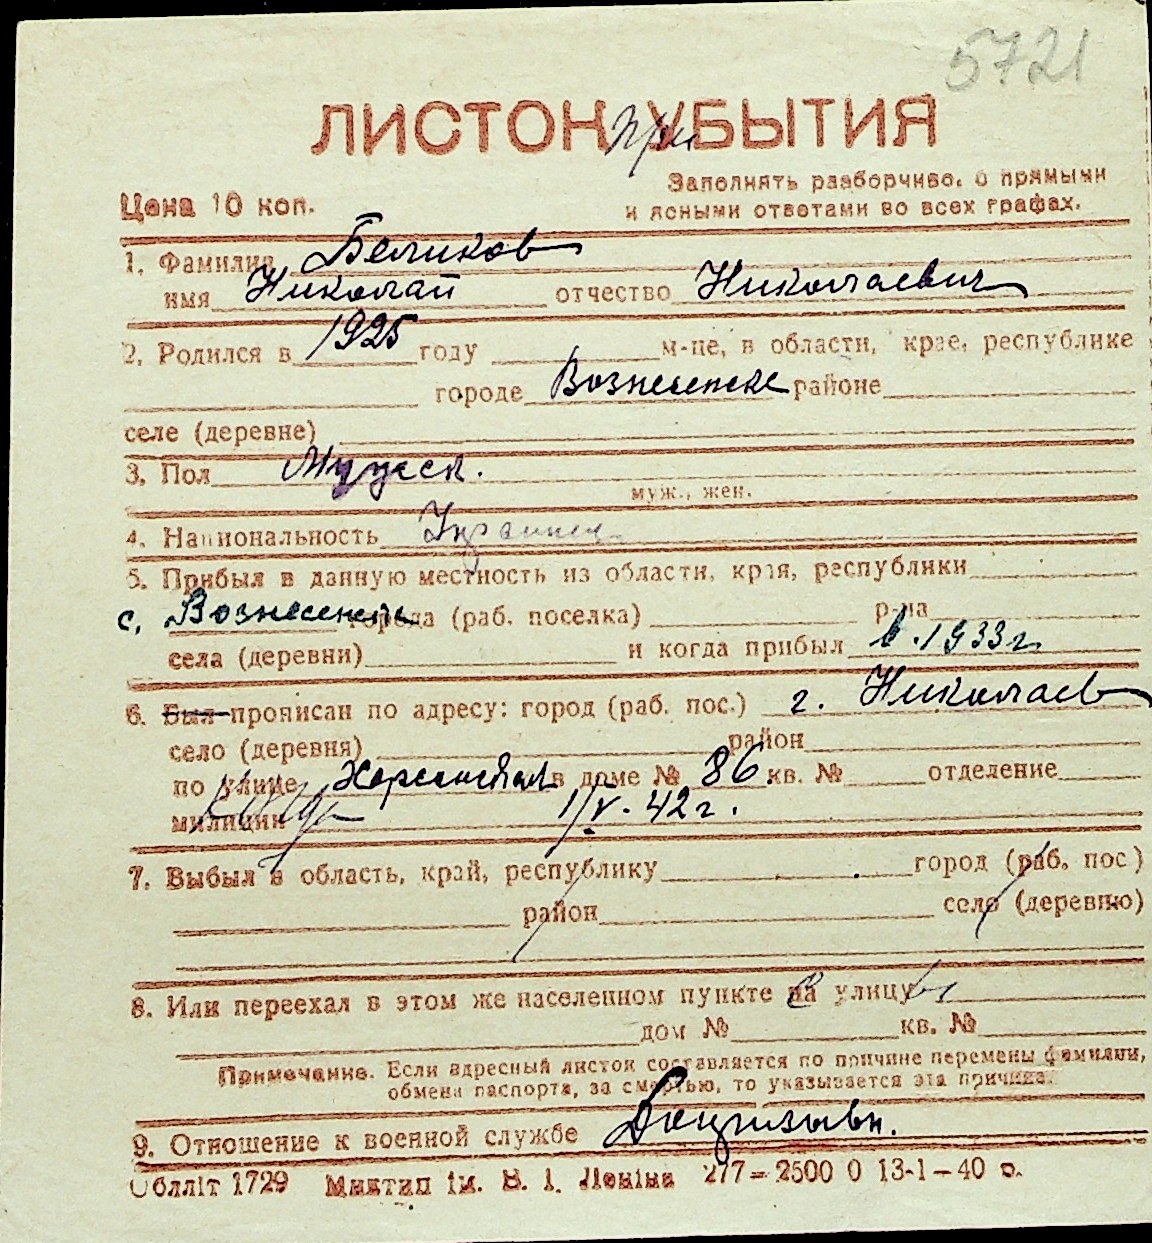 5721
ЛИСТОК При УБЫТИЯ
Цена 10 коп.
Заполнять разборчиво, с прямыми
и ясными ответами во всех графах.
1. Фамилия Беликов
имя Николай отчество Николаевич
2. Родился в 1925 году м-це, в области, крае, республике
городе Вознесенске районе
селе (деревне)
3. Пол Мужск.
муж., жен.
4. Национальность Украинец
5. Прибыл в данную местность из области, края, республики
с. Вознесенск города (раб. поселка) р-на
села (деревни) и когда прибыл в 1933 г.
6. Был прописан по адресу: город (раб. пос.) г. Николаев
село (деревня) район
по улице Херсонская в доме № 86 кв. № отделение
милиции 1/V-42 г.
7. Выбыл в область, край, республику город (раб. пос.)
район село (деревню)
8. Или переехал в этом же населенном пункте на улицу
дом № кв. №
Примечание. Если адресный листок составляется по причине перемены фамилии,
обмена паспорта, за смертью, то указывается эта причина.
9. Отношение к военной службе Допризывн.
Облліт 1729 Миктип ім. В. І. Леніна 277-2500 0 13-1-40 р.